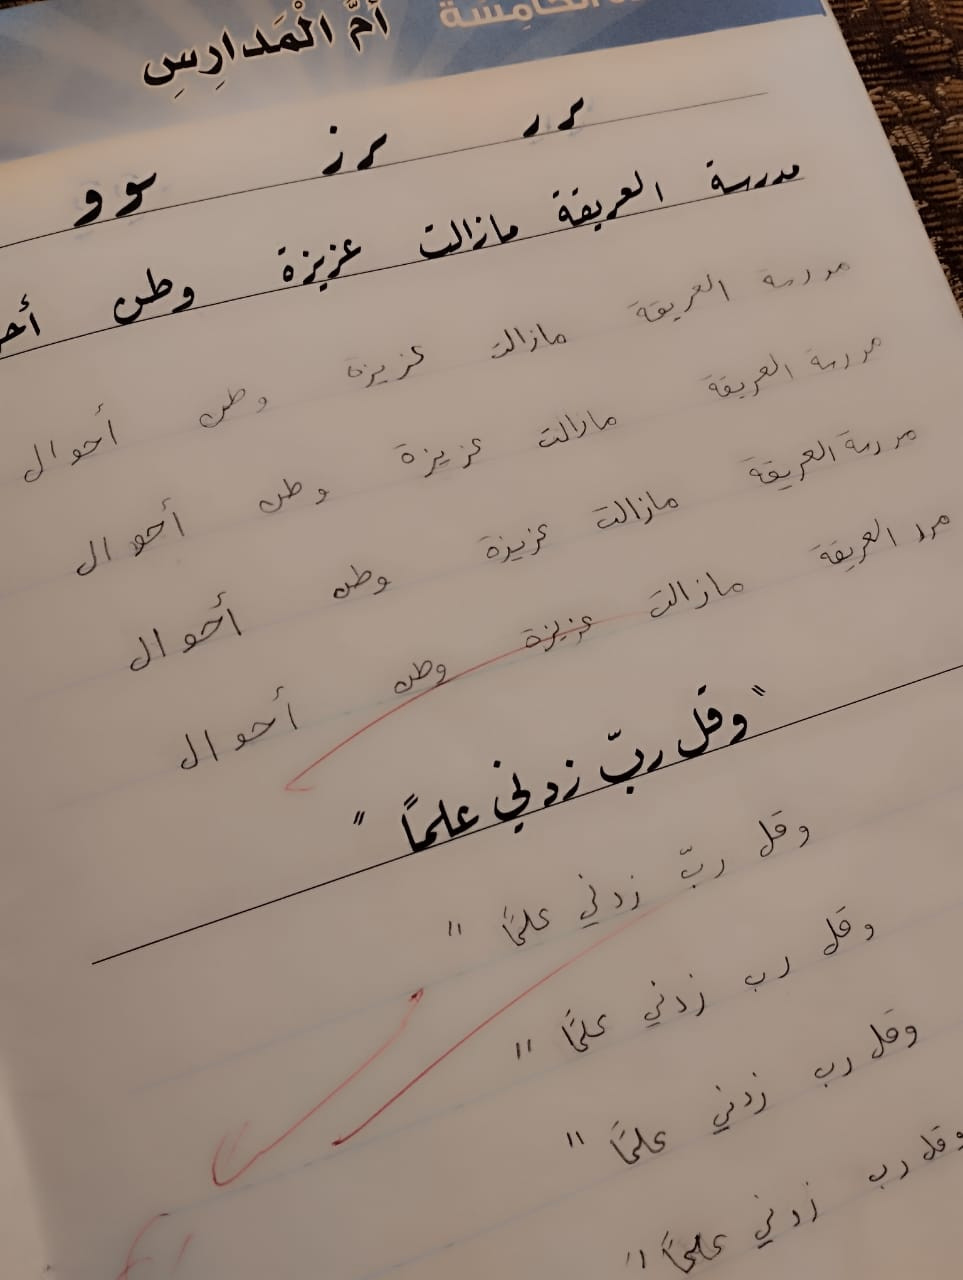 الخامسة
أُمُّ الْمَدارِسِ
ر ر ر ز و و
مدرسة العريقة مازالت عزيزة وطن
مدرسة العريقة مازالت عزيزة وطن أحوال
مدرسة العريقة مازالت عزيزة وطن أحوال
مدرسة العريقة مازالت عزيزة وطن أحوال
العريقة مازالت عزيزة وطن أحوال
"وقل ربّ زدني علماً"
وقل ربّ زدني علمًا "
وقل رب زدني علمًا "
وقل رب زدني علمًا "
وقل رب زدني علمًا "